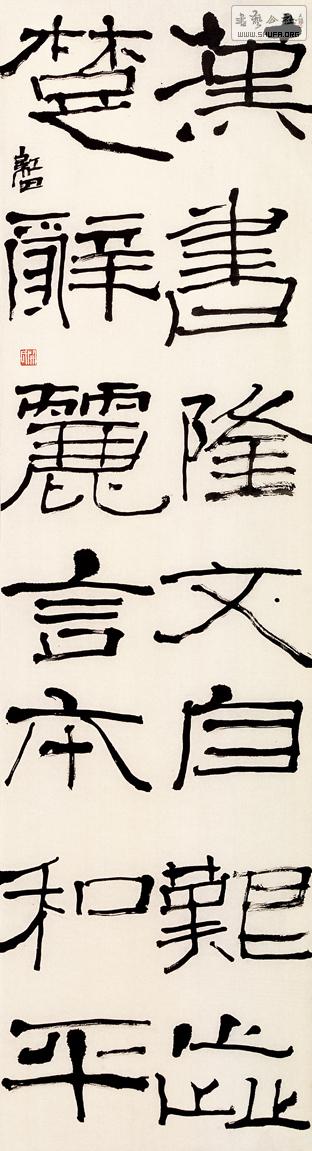 漢書隆文自艱歮
楚辭麗言本和平
書藝公社
WWW.SHUFA.ORG